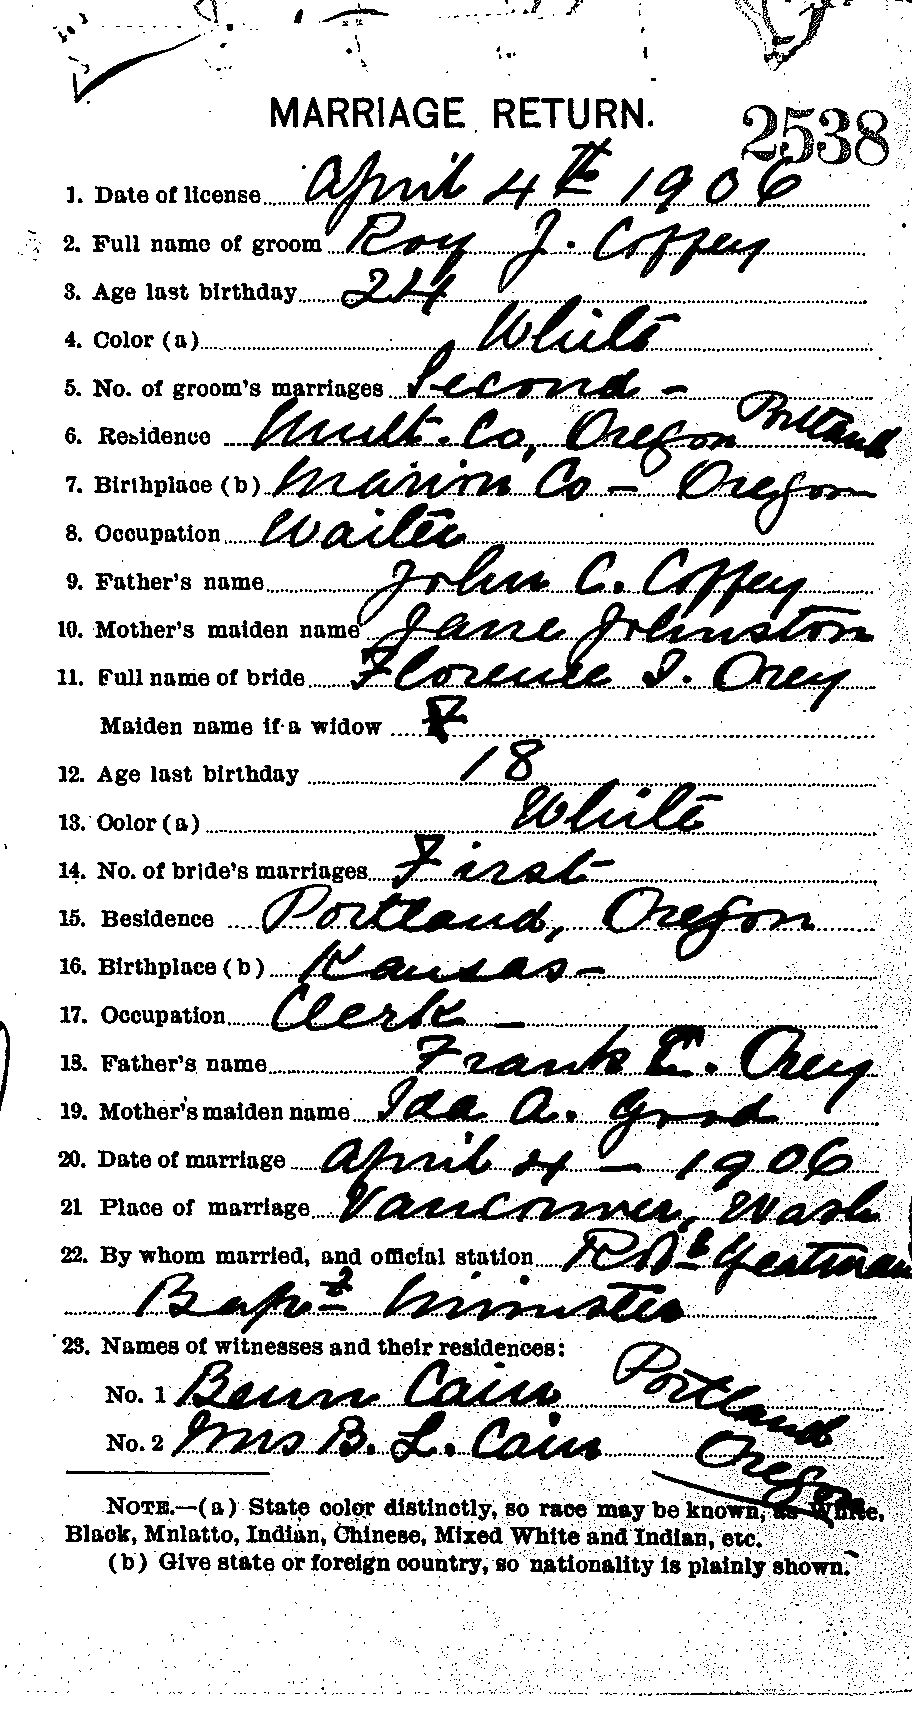 MARRIAGE RETURN.
2538
1. Date of license April 4th 1906
2. Full name of groom Roy J. Coffey
3. Age last birthday 24
4. Color (a) White
5. No. of groom's marriages Second -
6. Residence Mult. Co, Oregon Portland
7. Birthplace (b) Marion Co - Oregon
8. Occupation Waiter
9. Father's name John C. Coffey
10. Mother's maiden name Jane Johnston
11. Full name of bride Florence I. Orey
Maiden name if a widow
12. Age last birthday 18
13. Color (a) White
14. No. of bride's marriages First
15. Residence Portland, Oregon
16. Birthplace (b) Kansas -
17. Occupation Clerk -
18. Father's name Frank E. Orey
19. Mother's maiden name Ida A. Good
20. Date of marriage April 4 - 1906
21 Place of marriage Vancouver, Wash
22. By whom married, and official station
Bapt Minister
23. Names of witnesses and their residences:
No. 1 Benn Cain Portland
No. 2 Mrs B. L. Cain Oregon
NOTE.—(a) State color distinctly, so race may be known, as White,
Black, Mulatto, Indian, Chinese, Mixed White and Indian, etc.
(b) Give state or foreign country, so nationality is plainly shown.